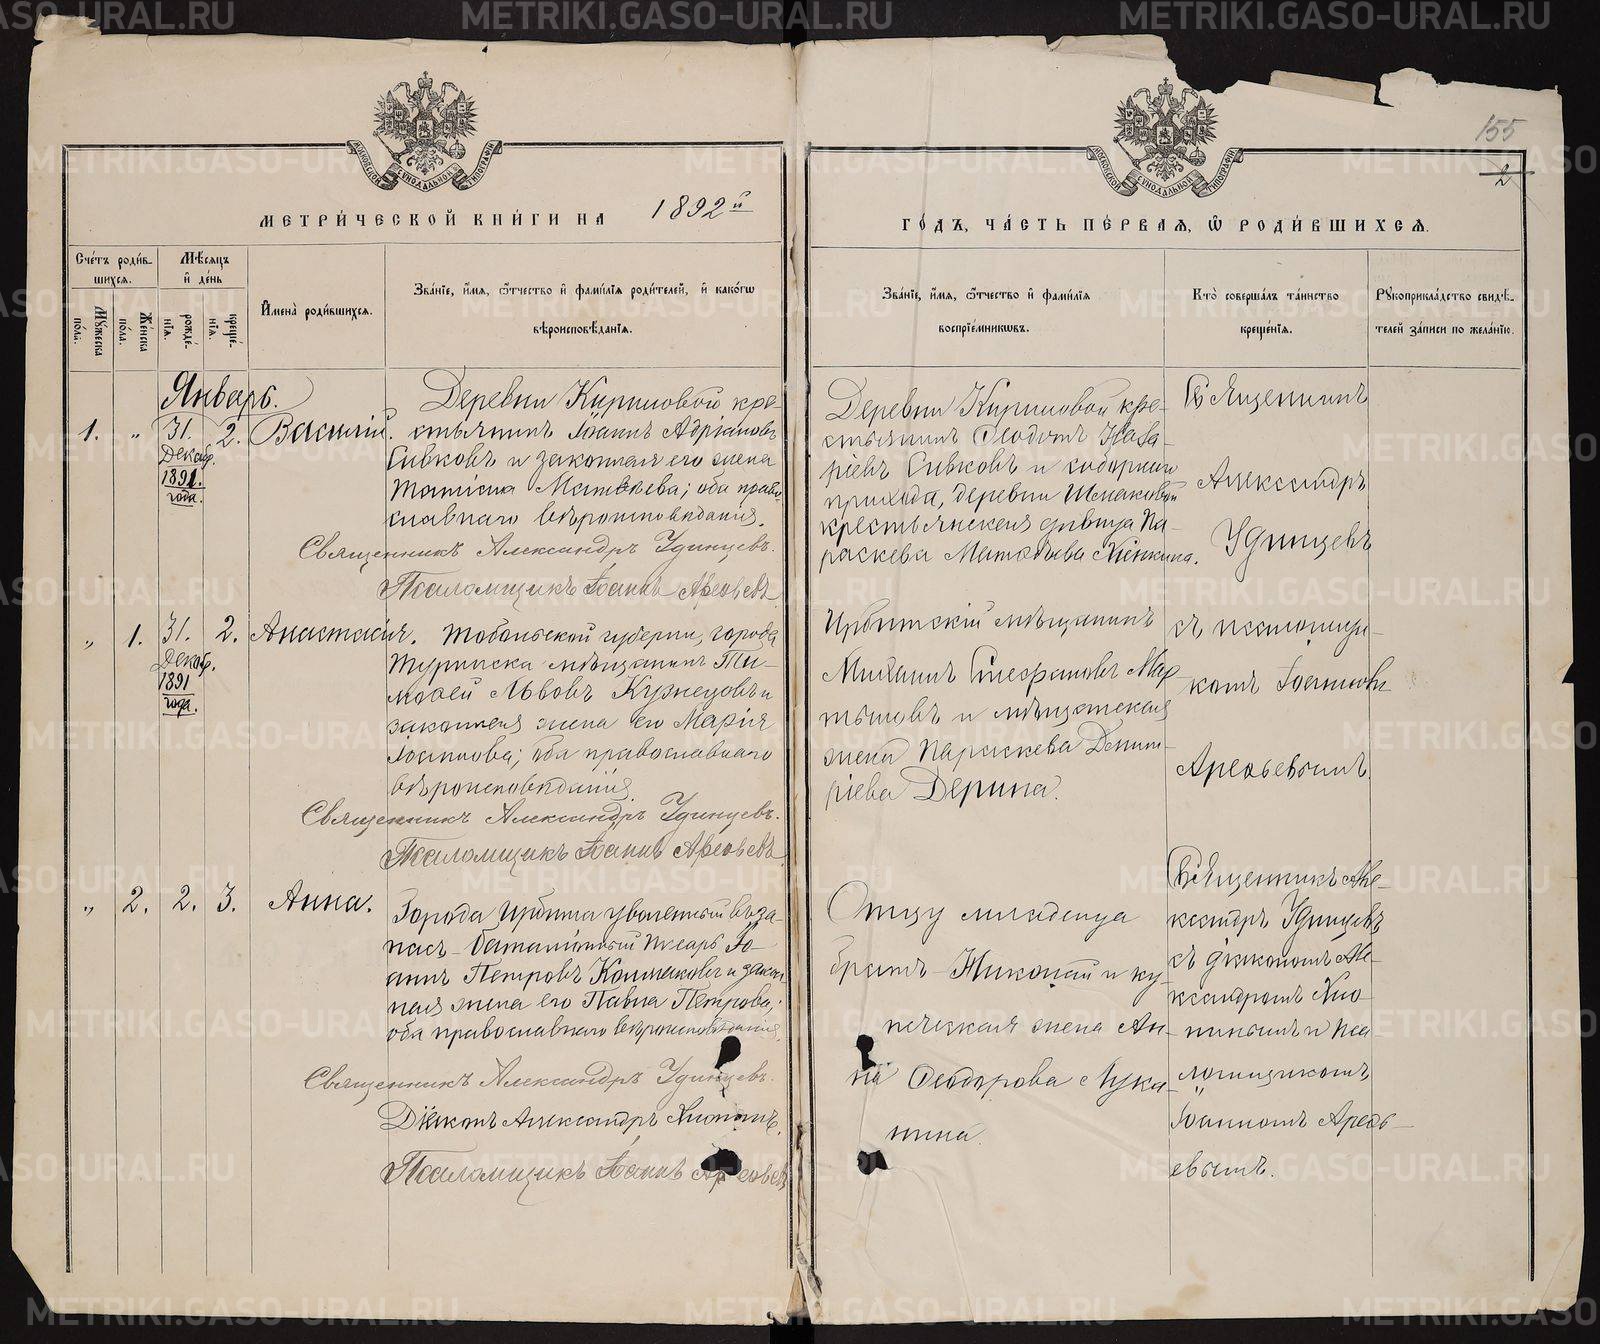 METRIKI.GASO-URAL.RU
155
2
МОСКОВСКОЙ СѴНОДАЛЬНОЙ ТИПОГРАФІИ
МЕТРИ́ЧЕСКОЙ КНИ́ГИ НА 1892й
ГО́ДЪ, ЧА́СТЬ ПЕ́РВАЯ, Ѽ РОДИ́ВШИХСЯ.
Сче́тъ роди́в-
шихся.
Мꙋ́жеска по́ла.
Же́нска по́ла.
Мѣ́сяцъ и҆ де́нь
рожде́-
нїя.
креще́-
нїя.
И҆мена̀ роди́вшихся.
Зва́нїе, и҆́мя, ѻ҆́тчество и҆ фами́лїя роди́телей, и҆ како́гѡ
вѣроисповѣ́данїя.
Зва́нїе, и҆́мя, ѻ҆́тчество и҆ фами́лїя
воспрїе́мникѡвъ.
Кто̀ соверша́лъ та́инство
креще́нїя.
Рꙋкоприкла́дство свидѣ́-
телей за́писи по жела́нїю.
Январь.
1. „ 31. 2. Василій.
Декаб.
1891.
года.
Деревни Кириловой кре-
стьянинъ Іоаннъ Адріановъ
Сивковъ и законная его жена
Татіана Матѳеева; оба право-
славнаго вѣроисповѣданія.
Священникъ Александръ Удинцевъ.
Псаломщикъ Іоаннъ Арефьевъ
Деревни Кириловой кре-
стьянинъ Ѳеодотъ Наза-
ріевъ Сивковъ и соборнаго
прихода, деревни Шмаковой
крестьянская дѣвица Па-
раскева
Священникъ
Александръ
Удинцевъ
„ 1. 31. 2. Анастасія.
Декаб.
1891
года.
Тобольской губерніи, города
Туринска мѣщанинъ Ти-
моѳей Львовъ Кузнецовъ и
законная жена его Марія
Іоаннова; оба православнаго
вѣроисповѣданія.
Священникъ Александръ Удинцевъ.
Псаломщикъ Іоаннъ Арефьевъ
Ирбитскій мѣщанинъ
Михаилъ Стефановъ Мар-
тыновъ и мѣщанская
жена Параскева Димит-
ріева Дерина.
съ псаломщи-
комъ Іоанномъ
Арефьевымъ.
„ 2. 2. 3. Анна.
Города Ирбита уволенный въ за-
пасъ баталіонный писарь Іо-
аннъ Петровъ Колмаковъ и закон-
ная жена его Павла Петрова;
оба православнаго вѣроисповѣданія.
Священникъ Александръ Удинцевъ.
Діаконъ Александръ
Псаломщикъ Іоаннъ Арефьевъ
Отцу младенца
братъ Николай и ку-
печеская жена Ан-
на Ѳеодорова Лука-
нина.
Священникъ Але-
ксандръ Удинцевъ
съ діакономъ Але-
ксандромъ Хло-
пинымъ и пса-
ломщикомъ
Іоанномъ Арефь-
евымъ.